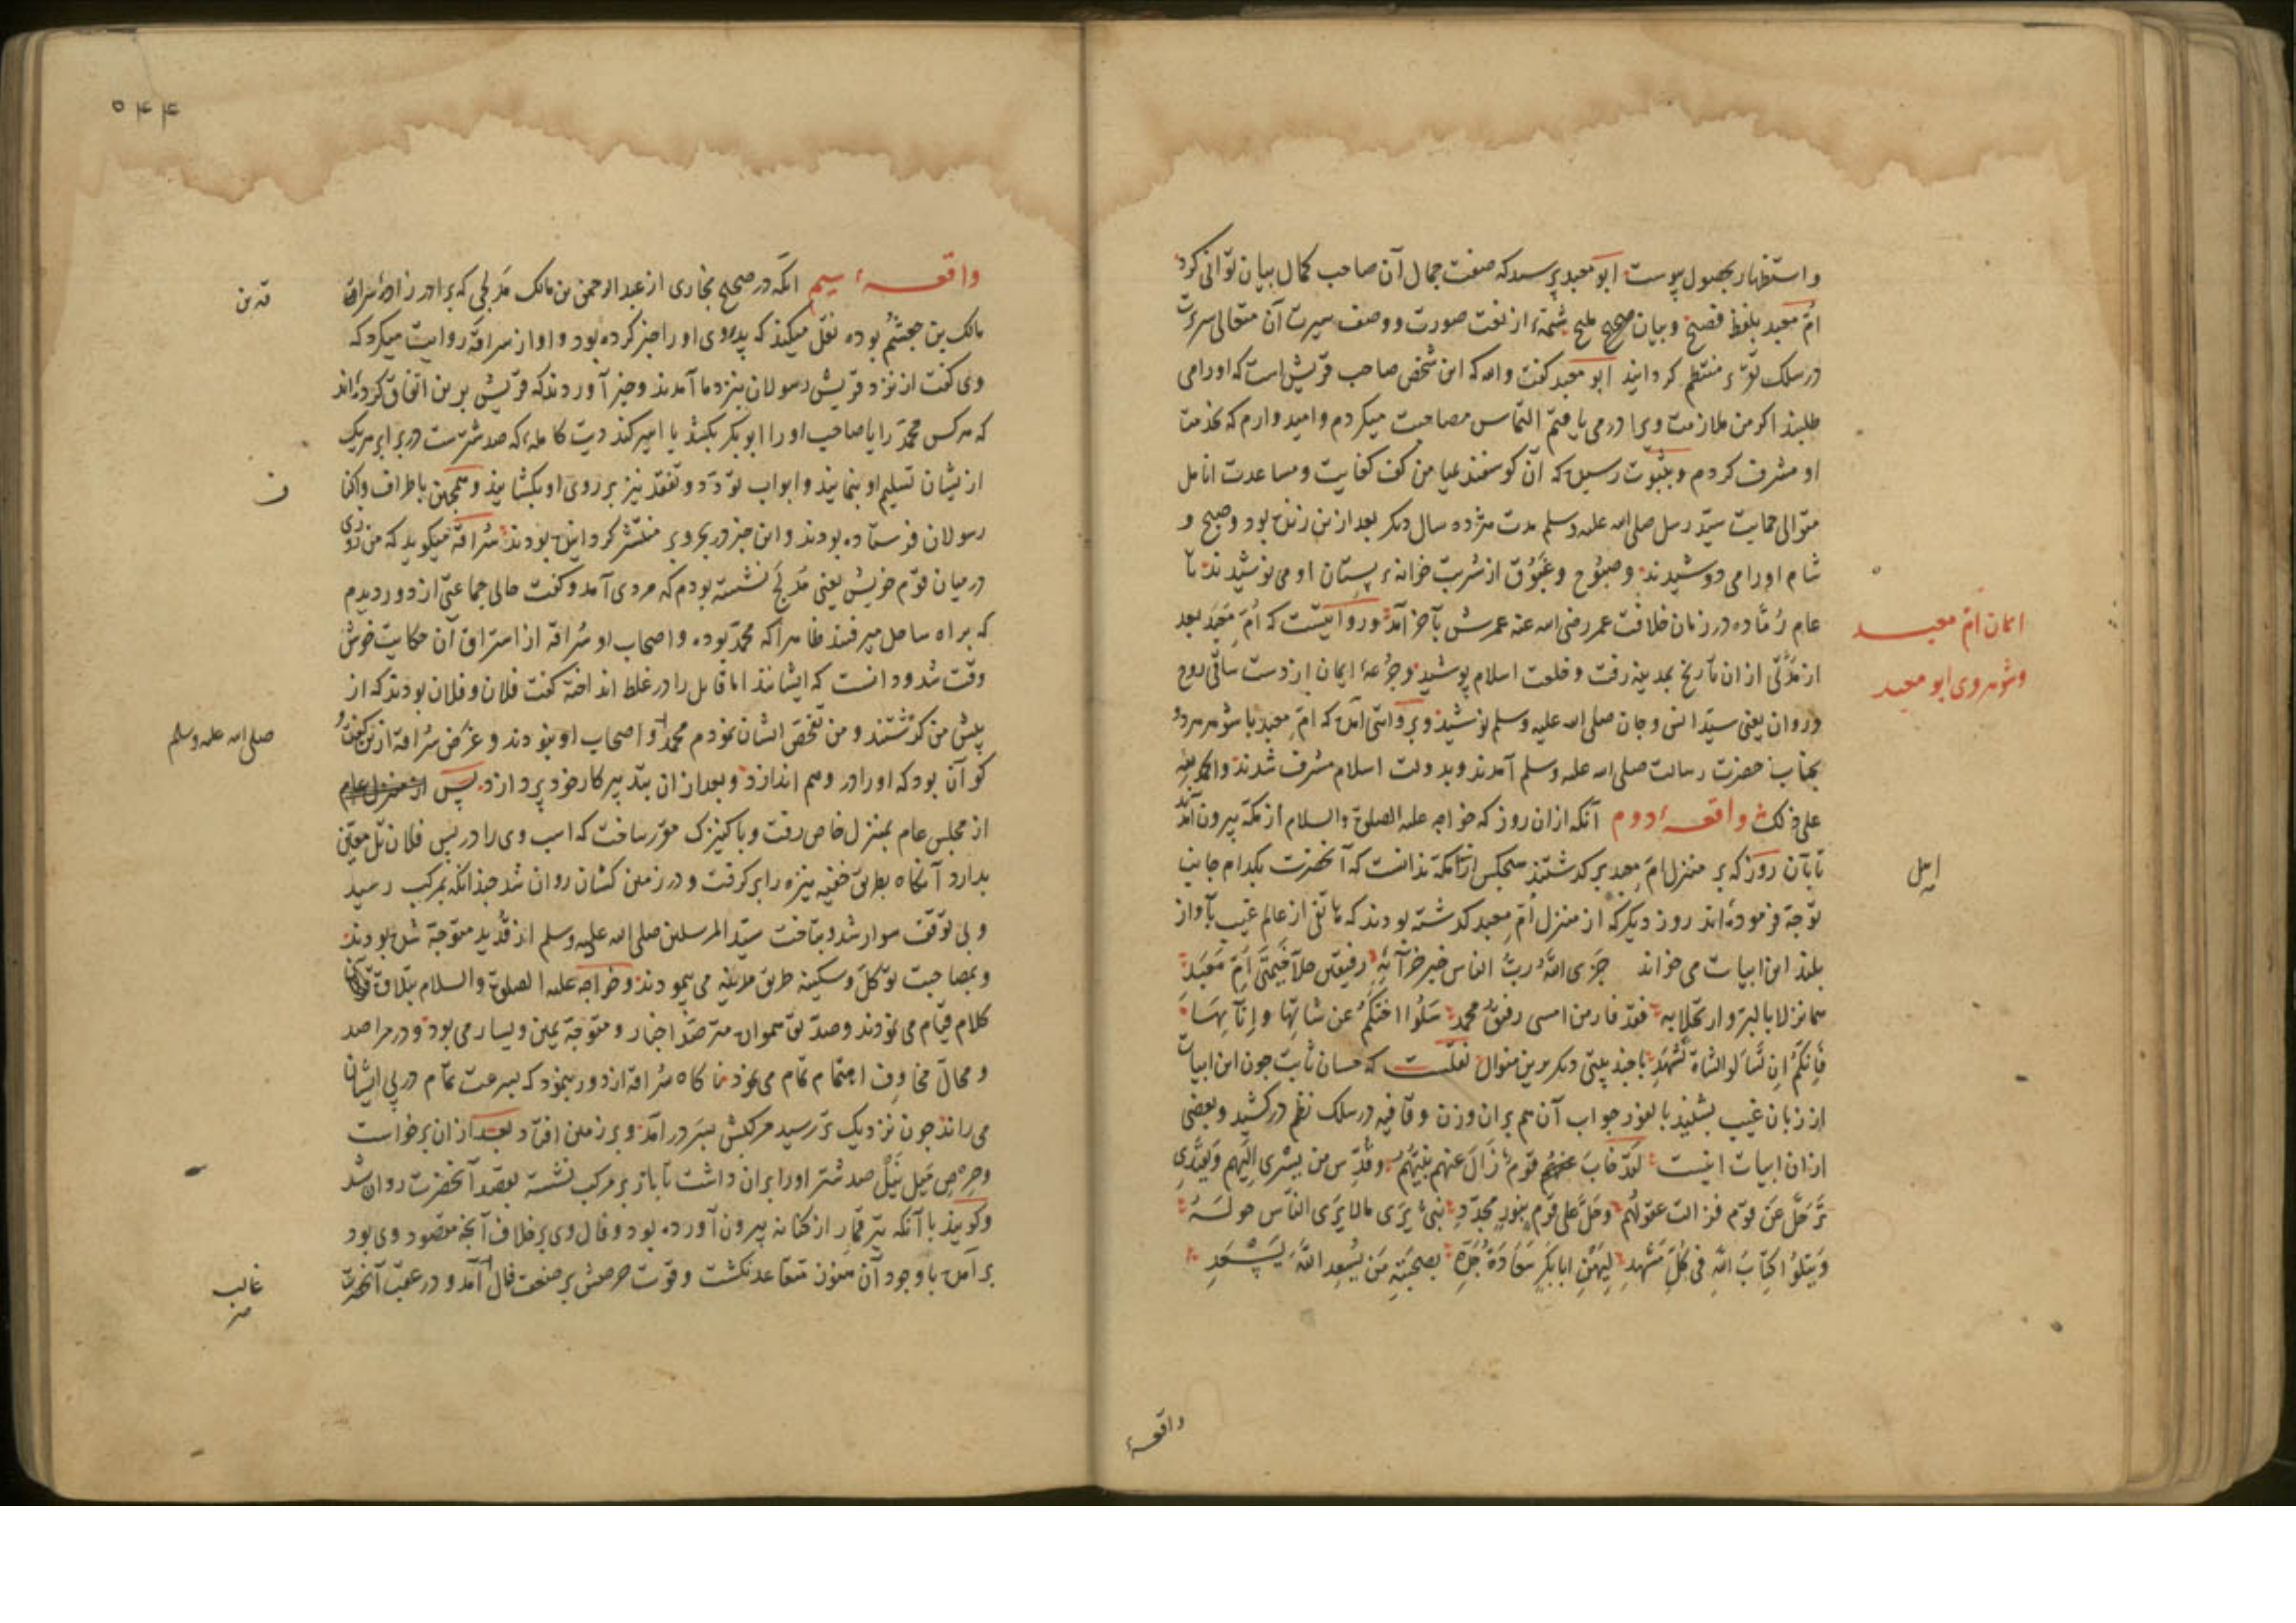 واستظهار بحصول پیوست ابو معبد پرسید که صفت جمال آن صاحب کمال بیان توانی کرد
ام معبد بلفظ فصیح و بیان صحیح ملیح شمهٔ از نعت صورت و وصف سیرت آن متعالی سریرت
در سلک توتر منتظم کردانید ابو معبد کفت والله که این شخص صاحب قریش است که اورا می
طلبند اکر من ملازمت ویرا در می یافتم التماس مصاحبت میکردم و امیدوارم که بخدمت
او مشرف کردم و بثبوت رسیده که آن کوسفند بمیامن کف کفایت و مساعدت انامل
متوالی حمایت سید رسل صلی الله علیه وسلم مدت هژده سال دیکر بعد ازین زنده بود و صبح و
شام اورا می دوشیدند و صبوح و غبوق از شربت خانهٔ پستان او می نوشیدند تا
عام رماده در زمان خلافت عمر رضی الله عنه عمرش بآخر آمد و روایتست که ام معبد بعد
از مدتی ازان تاریخ بمدینه رفت و خلعت اسلام پوشید و جرعهٔ ایمان از دست ساقی روح
و روان یعنی سید انس و جان صلی الله علیه وسلم نوشید و بروایتی آمده که ام معبد با شوهر هر دو
بجناب حضرت رسالت صلی الله علیه وسلم آمدند و بدولت اسلام مشرف شدند والحمد لله
علی ذلک واقعهٔ دوم آنکه ازان روز که خواجه علیه الصلوة والسلام از مکه بیرون آمد
تا بآن روز که بر منزل ام معبد بر کذشتند هیچکس از مکه ندانست که آنحضرت بکدام جانب
توجه فرموده اند روز دیکر که از منزل ام معبد کذشته بودند که هاتفی از عالم غیب بآواز
بلند این ابیات می خواند جزی الله رب الناس خیر جزآئه رفیقین حلا خیمتی ام معبد
هما نزلا بالبر وارتحلا به فقد فاز من امسی رفیق محمد سلوا اختکم عن شاتها و انآئها
فانکم ان تسألوا الشاة تشهد با چند بیتی دیکر برین منوال نقلست که حسان ثابت چون این ابیات
از زبان غیب بشنید بالفور جواب آن هم بران وزن و قافیه در سلک نظم درکشید و بعضی
ازان ابیات اینست لقد خاب قوم زال عنهم نبیهم وقدس من یسری الیهم ویغتدی
ترحل عن قوم فزالت عقولهم وحل علی قوم بنور مجدد نبی یری مالا یری الناس حوله
ویتلوا کتاب الله فی کل مشهد لیهن ابابکر سعادة جده بصحبته من یسعد الله یسعد
ایمان ام معبد
و شوهر وی ابو معبد
اهل
واقعهٔ
۵۴۴
واقعهٔ سیم انکه در صحیح بخاری از عبد الرحمن بن مالک مدلجی که برادر زادهٔ سراقة
مالک بن جعشم بوده نقل میکند که پدر وی اورا خبر کرده بود و او از سراقه روایت میکرد که
وی کفت از نزد قریش رسولان بنزد ما آمدند و خبر آوردند که قریش برین اتفاق کرده اند
که هر کس محمد را یا صاحب اورا ابو بکر بکشد یا اسیر کند دیت کامله که صد شترست در برابر هر یک
ازیشان تسلیم او بنمایند و ابواب تودد و تفقد نیز بر روی او بکشایند و همچنین باطراف واکنا
رسولان فرستاده بودند و این خبر در بحر و بر منتشر کردانیده بودند سراقه میکوید که من روزی
در میان قوم خویش یعنی مدلج نشسته بودم که مردی آمد و کفت حالی جماعتی از دور دیدم
که براه ساحل میرفتند ظاهرا که محمد بوده و اصحاب او سراقه از استراق آن حکایت خوش
وقت شد و دانست که ایشانند اما قایل را در غلط انداخته کفت فلان و فلان بودند که از
پیش من کذشتند و من تفحص ایشان نمودم محمد و اصحاب او نبودند و غرض سراقه ازین کفت و
کو آن بود که اورا در وهم اندازد و بعد ازان بتدبیر کار خود پردازد پس
از مجلس عام بمنزل خاص رفت و با کنیزک مقرر ساخت که اسب وی را در پس فلان تل معین
بدارد آنکاه بطریق خفیه نیزه را بر کرفت و در زمین کشان روان شد چندانکه بمرکب رسید
و بی توقف سوار شد و بتاخت سید المرسلین صلی الله علیه وسلم از قدید متوجه شده بودند
و بمصاحبت توکل و سکینه طریق مدینه می پیمودند و خواجه علیه الصلوة والسلام بتلاوت قرآن
کلام قیام می نمودند و صدیق همواره مترصد اخبار و متوجه یمین و یسار می بود و در مراصد
و محال مخاوف اهتمام تمام می نمود نا کاه سراقه از دور بنمود که بسرعت تمام در پی ایشان
می راند چون نزدیک تر رسید مرکبش بسر درآمد و بر زمین افتاد بعد ازان برخواست
و حرص میل نیل صد شتر اورا بران داشت تا باز بر مرکب نشسته بقصد آنحضرت روان شد
و کویند با آنکه تیر قمار از کنانه بیرون آورده بود و فال وی بر خلاف آنچه مقصود وی بود
بر آمده با وجود آن هنوز متقاعد نکشت و قوت حرصش بر ضعف فال آمد و در عقب آنحضرت
صلی الله علیه وسلم
ف
غالب